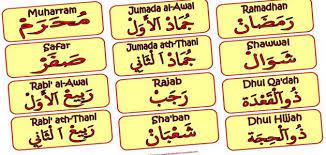 Muharram
مُحَرَّمْ
Safar
صَفَرْ
Rabi' al-Awal
رَبِيعُ الأَوَّلْ
Rabi' ath-Thani
رَبِيعُ الثَّانِي
Jumada al-Awal
جُمَادُ الأَوَّلْ
Jumada ath-Thani
جُمَادُ الثَّانِي
Rajab
رَجَبْ
Sha'ban
شَعْبَانْ
Ramadhan
رَمَضَانْ
Shawwal
شَوَالْ
Dhul Qa'dah
ذُوالْقَعْدَة
Dhul Hijjah
ذُوالْحِجَة